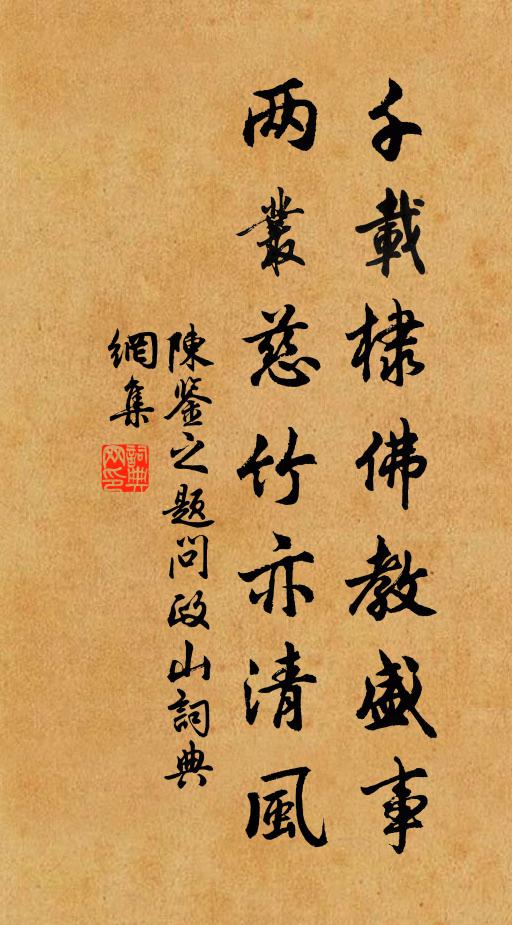 千載棣佛教盛事
两叢慈竹亦清風
陳鉴之题問政山詞典
網集
詞典
网印